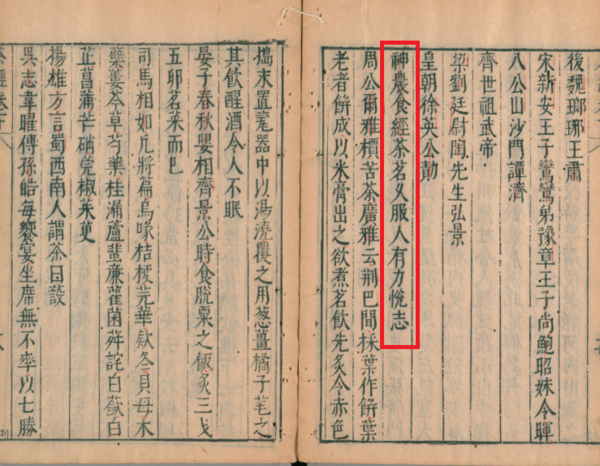 後魏瑯琊王肅
宋新安王子鸞鸞弟豫章王子尚鮑昭妹令暉
八公山沙門譚濟
齊世祖武帝
梁劉廷尉陶先生弘景
皇朝徐英公勣
神農食經茶茗久服人有力悅志
周公爾雅檟苦茶廣雅云荆巴間採葉作餅葉
老者餅成以米膏出之欲煮茗飲先炙令赤色
搗末置瓷器中以湯澆覆之用葱薑橘子芼之
其飲醒酒令人不眠
晏子春秋嬰相齊景公時食脫粟之飯炙三戈
五卯茗菜而巳
司馬相如凡將篇烏喙桔梗芫華款冬貝母木
蘗蔞今草芍藥桂漏蘆蜚廉雚菌荈詫白蘞白
芷菖蒲芒硝莞椒茱萸
揚雄方言蜀西南人謂茶曰蔎
吳志韋曜傳孫皓每饗宴坐席無不率以七勝